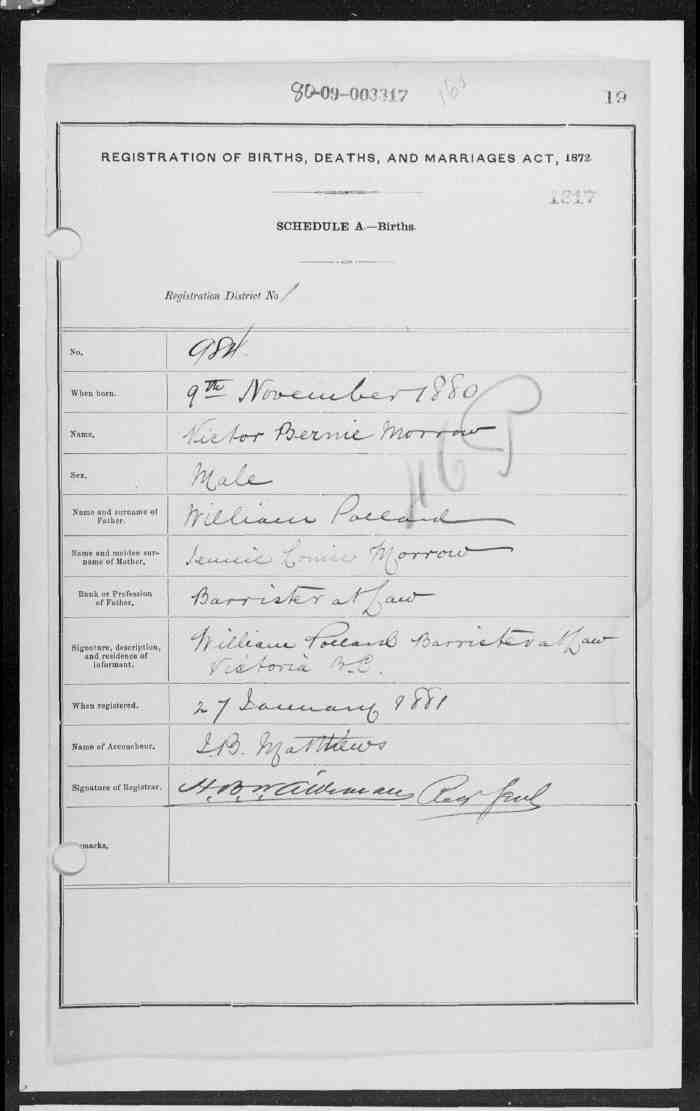 80-09-003317
19
REGISTRATION OF BIRTHS, DEATHS, AND MARRIAGES ACT, 1872
1317
SCHEDULE A.—Births.
Registration District No 1
No. 984
When born. 9th November 1880
Name, Victor Bernie Morrow
Sex. Male
Name and surname of
Father. William Pollard
Name and maiden sur-
name of Mother, Jennie Morrow
Rank or Profession
of Father, Barrister at Law
Signature, description,
and residence of
informant. William Pollard Barrister at Law
Victoria B.C.
When registered. 27 January 1881
Name of Accoucheur, I.B. Matthews
Signature of Registrar. H.B.W. Aikman Regr Genl
marks,